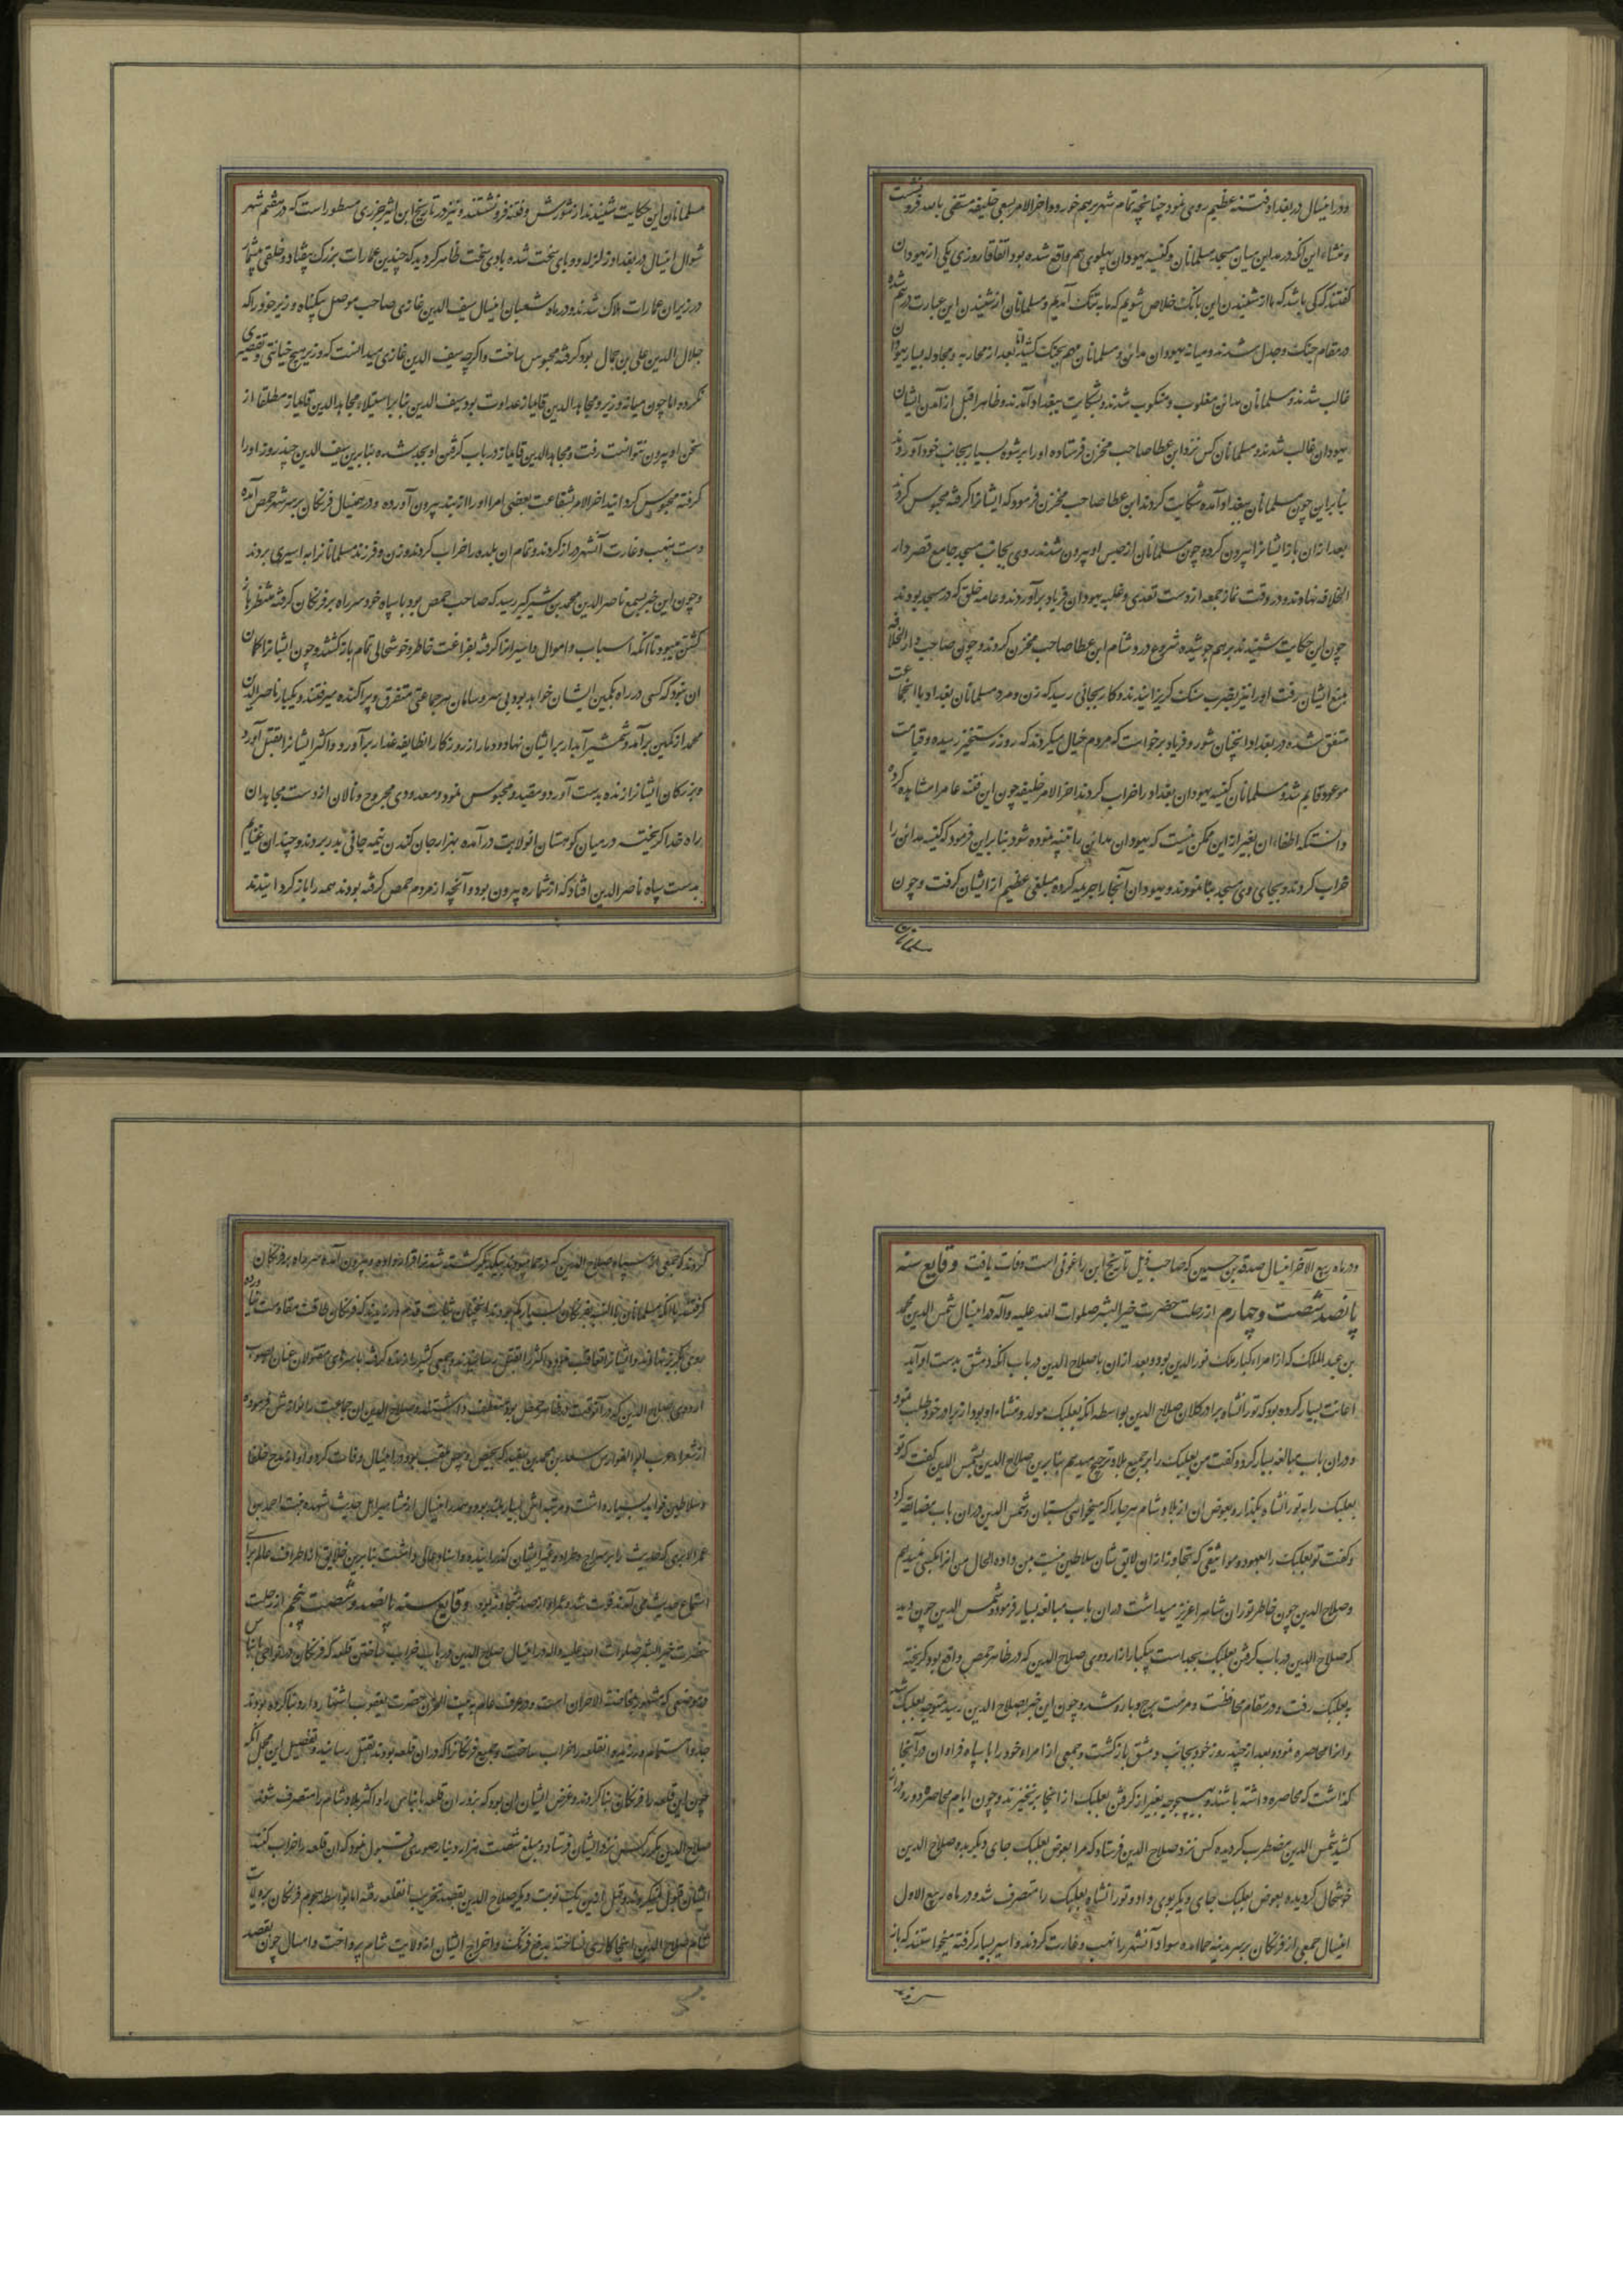 ودر اینسال در بغداد فتنه عظیم روی نمود چنانچه تمام شهر برهم خورد و اخر الامر بسعی خلیفه مستضی بالله فرو نشست
و منشاء این انکه در مداین میان مسجد مسلمانان و کنیسه یهودان پهلوی هم واقع شده بود اتفاقا روزی یکی از یهودان
گفتند که کی باشد که ما از شنیدن این بانک خلاص شویم که ما به تنک آمدیم و مسلمانان از شنیدن این عبارت درهم شده
در مقام جنک و جدل شدند و میانه یهودان مداین و مسلمانان مهم بجنک کشید اما بعد از محاربه و مجادله بسیار یهودان
غالب شدند و مسلمانان مدائن مغلوب و منکوب شدند و بشکایت ببغداد آمدند و ظاهرا قبل از آمدن ایشان
یهودان غالب شدند و مسلمانان کس نزد ابن عطا صاحب مخزن فرستاده او را برشوه بسیار بجانب خود آوردند
بنابر این چون مسلمانان ببغداد آمده شکایت کردند ابن عطا صاحب مخزن فرمود که ایشانرا گرفته محبوس کردند
بعد از ان باز ایشانرا بیرون کرده چون مسلمانان از حبس او بیرون شدند روی بجانب مسجد جامع قصر دار
الخلافه نهادند و در وقت نماز جمعه از دست تعدی و غلبه یهودان فریاد برآوردند و عامه خلق که در مسجد بودند
چون این حکایت شنیدند برهم جوشیده شروع در دشنام ابن عطا صاحب مخزن کردند و چون صاحب دار الخلافه
بمنع ایشان رفت او را نیز بضرب سنک گریزانیدند و کار بجائی رسید که زن و مرد مسلمانان بغداد با انجماعت
متفق شده در بغداد انچنان شور و فریاد برخواست که مردم خیال میکردند که روز رستخیز رسیده و قیامت
موعود قایم شد و مسلمانان کنیسه یهودان بغداد را خراب کردند اخر الامر خلیفه چون این فتنه عام را مشاهده کرده
دانست که اطفاء ان بغیر از این ممکن نیست که یهودان مداین را تنبیه نموده شود بنابر این فرمود که کنیسه مدائن را
خراب کردند و بجای وی مسجد بنا نمودند و یهودان آنجا را جریمه کرده مبلغی عظیم از ایشان گرفت و چون
مسلمانان
مسلمانان این حکایت شنیدند از شورش و فتنه فرو نشستند و نیز در تاریخ ابن اثیر جزری مسطور است که در هشتم شهر
شوال اینسال در بغداد زلزله و وبای سخت شده بادی سخت ظاهر گردید که چندین عمارات بزرک بیفتاد و خلقی بیشمار
در زیر ان عمارات هلاک شدند و در ماه شعبان اینسال سیف الدین غازی صاحب موصل بیگناه وزیر خود را که
جلال الدین علی بن جمال بود گرفته محبوس ساخت و اگرچه سیف الدین غازی میدانست که وزیر هیچ خیانتی و تقصیری
نکرده اما چون میانه وزیر و مجاهد الدین قایماز عداوت بود سیف الدین بنابر استیلاء مجاهد الدین قایماز مطلقا از
سخن او بیرون نتوانست رفت و مجاهد الدین قایماز در باب گرفتن او بجد شده بنابرین سیف الدین چند روز او را
گرفته محبوس گردانید اخر الامر بشفاعت بعضی امرا او را از بند بیرون آورده و در همینسال فرنکان بر سر شهر حمص آمده
دست بنهب و غارت آنشهر دراز کردند و تمام ان بلده را خراب کردند و زن و فرزند مسلمانانرا به اسیری بردند
و چون این خبر بسمع ناصر الدین محمد بن شیرکیر رسید که صاحب حمص بود با سپاه خود سر راه بر فرنکان گرفته منتظر باز
گشتن میبود تا آنکه اسباب و اموال و اسیرانرا گرفته بفراغت خاطر و خوشحالی تمام بازگشتند و چون ایشانرا گمان
ان نبود که کسی در راه بکمین ایشان خواهد بود بی سر و سامان هر جماعتی متفرق و پراکنده میرفتند و یکبار ناصر الدین
محمد از کمین برآمد و شمشیر آبدار بر ایشان نهاد و دمار از روزگار انطایفه غدار برآورد و اکثر ایشانرا بقتل آورد
و بزرکان ایشانرا زنده بدست آورد و مقید و محبوس نمود و معدودی مجروح و نالان از دست مجاهدان
راه خدا گریخته در میان کوهستان انولایت درآمده بهزار جان کندن نیمه جانی بدر بردند و چندان غنایم
بدست سپاه ناصر الدین افتاد که از شماره بیرون بود و آنچه از مردم حمص گرفته بودند همه را باز گردانیدند
ودر ماه ربیع الآخر اینسال صدقه بن حسین که صاحب ذیل تاریخ ابن راغونی است وفات یافت وقایع سنه
پانصد شصت و چهارم از رحلت حضرت خیر البشر صلوات الله علیه و آله در اینسال شمس الدین محمد
بن عبد الملک که از امراء کبار ملک نور الدین بود و بعد از ان با صلاح الدین در باب آنکه دمشق بدست او آید
اعانت بسیار کرده بود که تورانشاه برادر کلان صلاح الدین بواسطه انکه بعلبک مولد و منشاء او بود از برادر خود طلب نمود
و در ان باب مبالغه بسیار کرد و گفت من بعلبک را بر جمیع بلاد ترجیح میدهم بنابرین صلاح الدین بشمس الدین گفت که تو
بعلبک را به تورانشاه بگذار و بعوض ان از بلاد شام هر جا را که میخواهی بستان و شمس الدین در ان باب مضایقه کرد
و گفت تو بعلبک را بعهود و مواثیقی که تجاوز از ان لایق شان سلاطین نیست بمن داده الحال من انرا بکسی نمیدهم
و صلاح الدین چون خاطر توران شاه را عزیز میداشت در ان باب مبالغه بسیار فرمود و شمس الدین چون دید
که صلاح الدین در باب گرفتن بعلبک بجد است یکبار از اردوی صلاح الدین که در ظاهر حمص واقع بود گریخته
به بعلبک رفت و در مقام محافظت و مرمت برج و بارو شد و چون این خبر بصلاح الدین رسید متوجه بعلبک شد
و انرا محاصره نمود و بعد از چند روز خود بجانب دمشق بازگشت و جمعی از امراء خود را با سپاه فراوان در آنجا
گذاشت که محاصره داشته باشند و بهیچوجه بغیر از گرفتن بعلبک از انجا برنخیزند و چون ایام محاصره دور و دراز
کشید شمس الدین مضطرب گردیده کس نزد صلاح الدین فرستاد که مرا بعوض بعلبک جای دیگر بده صلاح الدین
خوشحال گردیده بعوض بعلبک جای دیگر بوی داد و تورانشاه بعلبک را متصرف شد و در ماه ربیع الاول
اینسال جمعی از فرنکان بر سر مدینه حما امده سواد آنشهر را نهب و غارت کردند و اسیر بسیار گرفته میخواستند که باز
گردند که جمعی از سپاه صلاح الدین که در حما بودند بیکدیگر گفته شدند قرار داده و بیرون آمده سر راه بر فرنکان
گرفتند با انکه مسلمانان بالنسبه بفرنکان بسیار کم بودند انچنان ثبات قدم ورزیدند که فرنکان طاقت مقاومت نیاورده
روی بگریز نهادند و ایشانرا تعاقب نموده اکثر را بقتل رسانیدند و جمعی کثیر را زنده گرفته با سرهای مقتولان عنان بصوب
اردوی صلاح الدین که در آنوقت در ظاهر حمص بود منعطف داشتند و صلاح الدین ان جماعت را نوازش فرموده
از شعراء عرب ابو الفوارس سعد بن محمد بن سعد که بحیص و بیص ملقب بود در اینسال وفات کرد و او از مدح خلفا
و سلاطین فواید بسیار داشت و مرتبه اش بسیار بلند بود و هم در اینسال از مشاهیر اهل حدیث شهده بنت احمد بن
عمر الابری که حدیث را بر سراج و طراد و غیر ایشان گذرانیده و اسناد عالی داشت بنابرین خلایق از اطراف عالم برای
استماع حدیث می آمدند فوت شد و عمر او از صد تجاوز بود وقایع سنه پانصد و شصت پنجم از رحلت
حضرت خیر البشر صلوات الله علیه واله در اینسال صلاح الدین در باب خراب ساختن قلعه که فرنکان در نواحی بانیاس
در موضعی که مشهور بمخاضة الاحزان است و در عرف عام به بیت الحزن حضرت یعقوب اشتهار دارد بنا کرده بودند
جد و اهتمام ورزیده انقلعه را خراب ساخت و جمیع فرنکانرا که در ان قلعه بودند بقتل رسانید و تفصیل این مجمل آنکه
چون این قلعه را فرنکان بنا کردند و غرض ایشان ان بود که بزور ان قلعه بانیاس را و اکثر بلاد شام را متصرف شوند
صلاح الدین مکرر کس نزد ایشان فرستاد و مبلغ شصت هزار دینار صوری قبول نمود که ان قلعه را خراب کنند
ایشان قبول نمیکردند و قبل از این یک نوبت دیگر صلاح الدین بقصد تخریب انقلعه رفته اما بواسطه هجوم فرنکان بر ولایت
شام صلاح الدین انجا کاری نساخته بدفع فرنک و اخراج ایشان از ولایت شام پرداخت و امسال چون بقصد